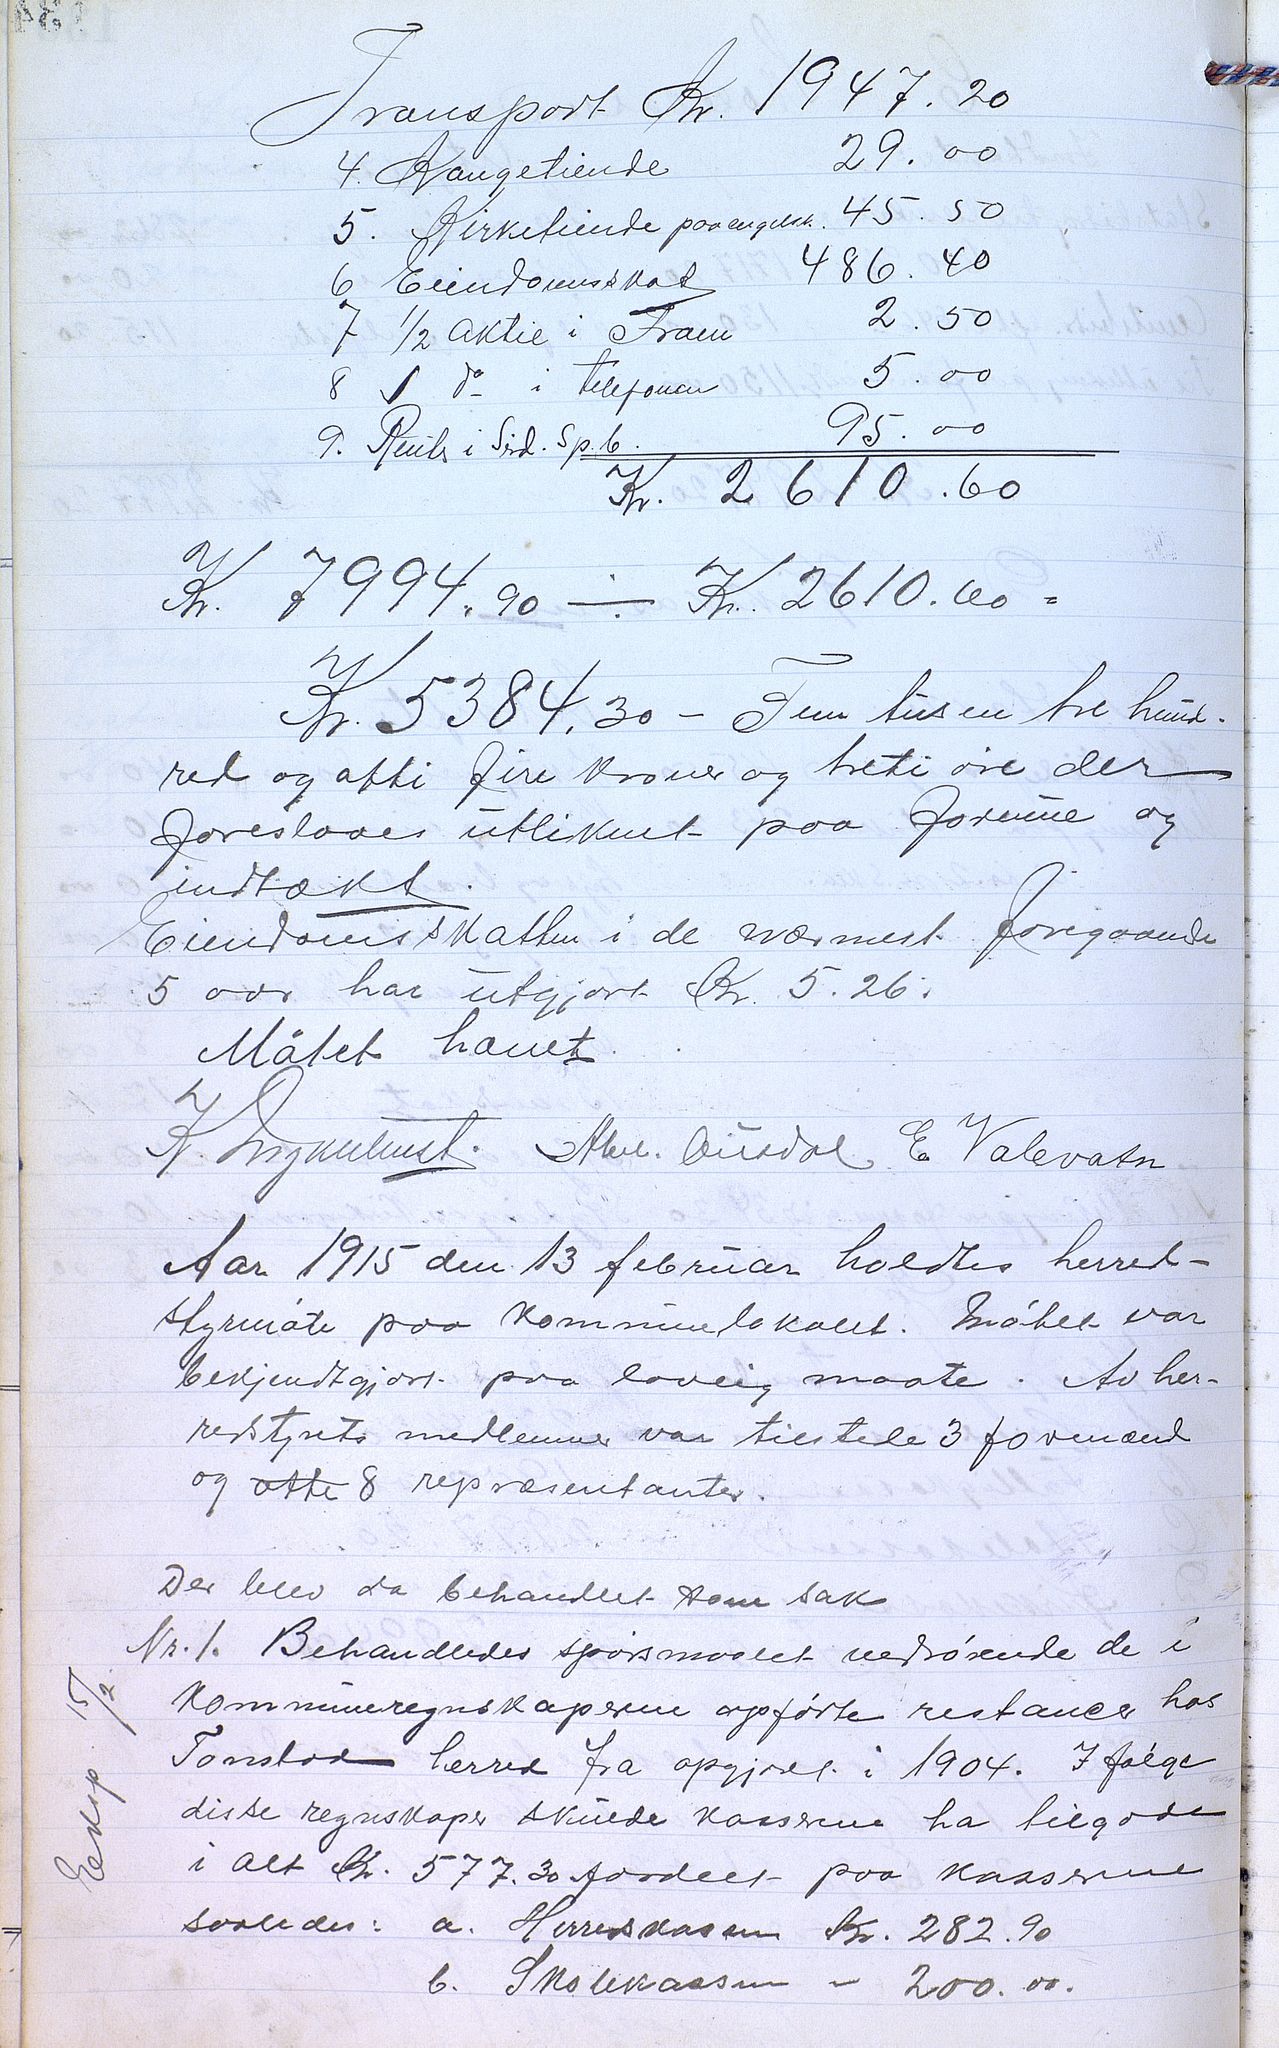 Transport Kr. 1947.20
4. Kongetiende 29.00
5. Kirketiende paa engelsk. 45.50
6 Eiendomsskat 486.40
7 1/2 aktie i Fram 2.50
8 1 do i telefonen 5.00
9. Renter i Sird. Sp.b. 95.00
Kr. 2610.60
Kr. 7994.90 ÷ Kr. 2610.60 =
Kr. 5384,30 – Fem tusen tre hund-
red og otti fire kroner og treti øre der
foreslaaes utliknet paa formue og
indtækt.
Eiendomsskatten i de nærmest foregaaende
5 aar har utgjort Kr. 5.26.
Møtet hævet.
K. Ausdal E Valevatn
Aar 1915 den 13 februar holdtes herred-
styrmøte paa kommunelokalet. Møtet var
bekjendtgjort paa lovlig maate. Av her-
redstyrets medlemmer var tilstede 3 formænd
og otte 8 repræsentanter.
Der blev da behandlet som sak
Nr. 1. Behandledes spørsmaalet vedrørende de i
kommuneregnskaperne opførte restancer hos
Tonstad herred fra opgjøret i 1904. Ifølge
disse regnskaper skulde kasserne ha tilgode
i alt Kr. 577.30 fordelt paa kasserne
saaledes: a. Herredskassen Kr. 282.90
b. Skolekassen – 200.00.
Ekskp 15/2